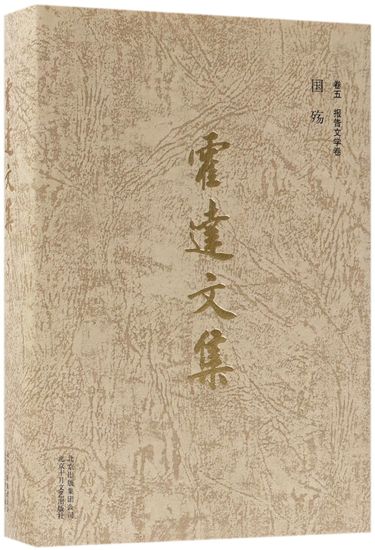 卷五 报告文学卷
国殇
霍达文集
霍达文集
北京出版集团公司
北京十月文艺出版社